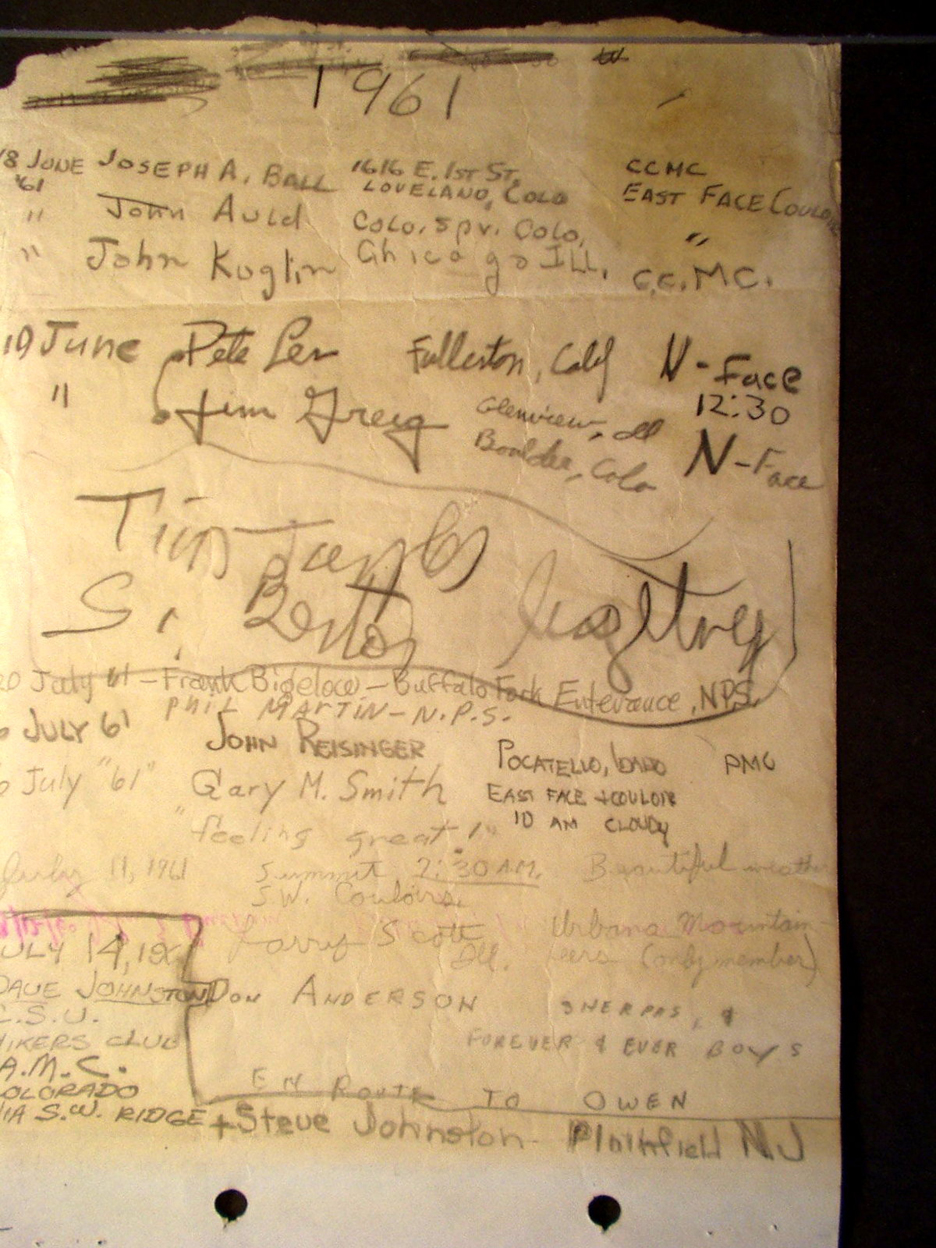 1961
18 JUNE JOSEPH A. BALL 1616 E. 1ST ST. CCMC
'61 LOVELAND, COLO EAST FACE
" John Auld Colo. Spr. Colo. "
" John Koglin Chicago ILL. C.C.M.C.
19 June Pete Lev Fullerton, Calif N-Face
12:30
" Jim Greig Glenview, Ill N-Face
Boulder, Colo
Tim
S.
20 July 61 - Frank Bigelow - Buffalo Fork Enterance, NPS.
PHIL MARTIN - N.P.S.
JULY 61 JOHN REISINGER POCATELLO, IDAHO
July "61" Gary M. Smith EAST FACE + COULOIR
10 AM CLOUDY
"feeling great!"
July 11, 1961 Summit 7:30 A.M. Beautiful weather
S.W. Couloirs.
Larry Scott Urbana Mountain-
Ill. eers (only member)
ULY 14, 196
DAVE JOHNSTON DON ANDERSON SHERPAS, &
C.S.U. FOREVER & EVER BOYS
HIKERS CLUB
A.M.C.
EN ROUTE TO OWEN
OLORADO
IA S.W. RIDGE + Steve Johnston - Plainfield NJ